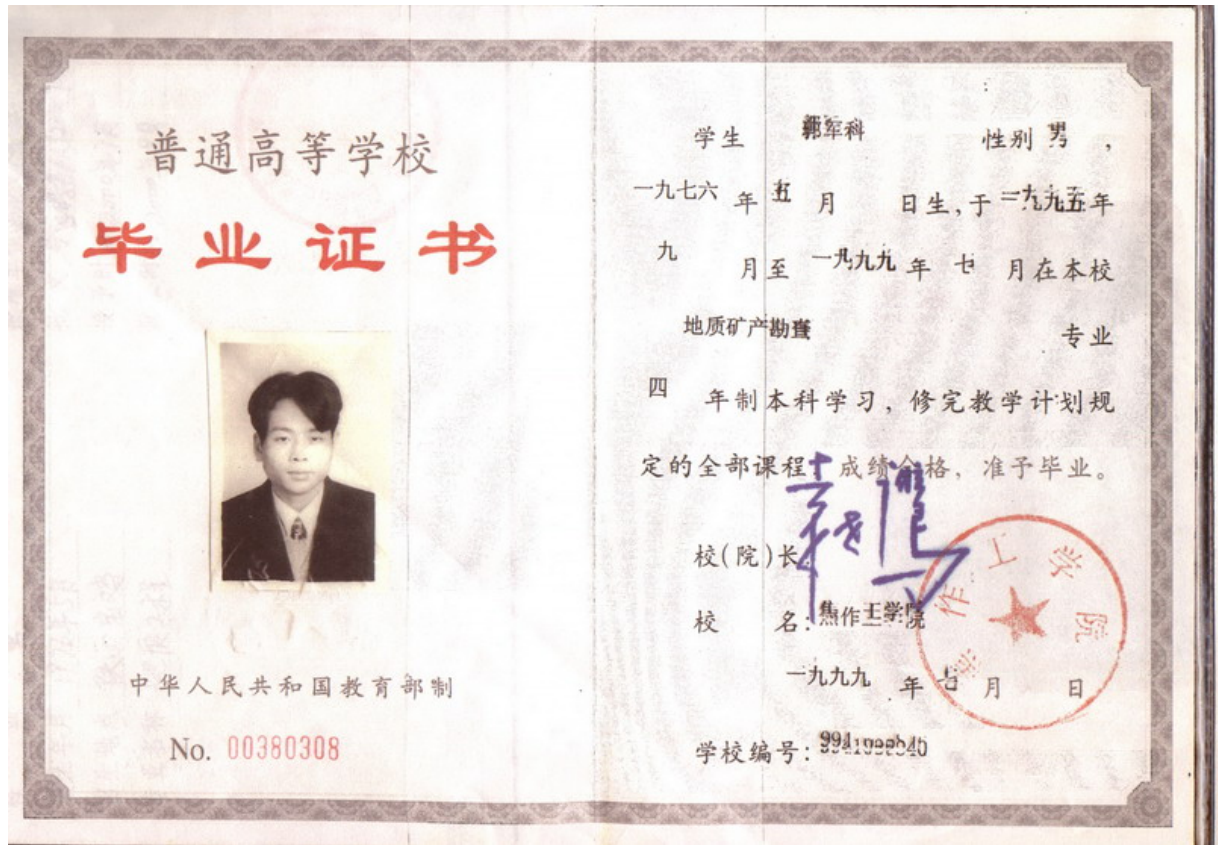 普通高等学校
毕业证书
中华人民共和国教育部制
No. 00380308
学生 郭军科 性别 男 ,
一九七六 年 五 月 日生,于 一九九五 年
九 月至 一九九九 年 七 月在本校
地质矿产勘查 专业
四 年制本科学习, 修完教学计划规
定的全部课程, 成绩合格, 准予毕业。
校(院)长
校 名: 焦作工学院
一九九九 年 七 月 日
学校编号:
焦作工学院